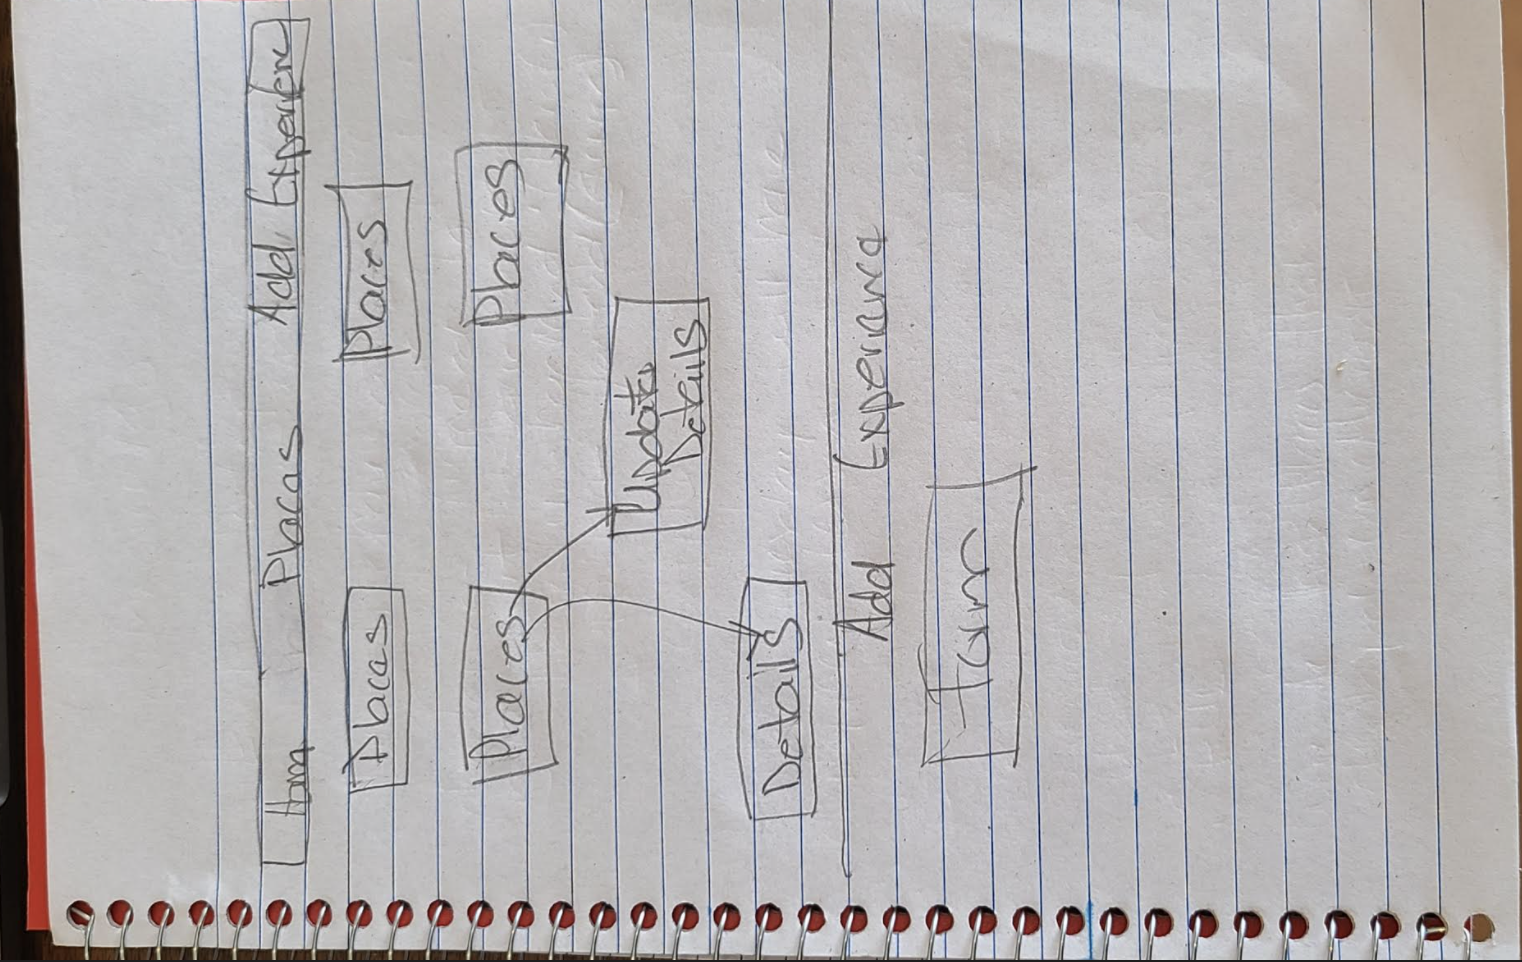 Hom Places Add Experienc
Places Places
Places Places
Update
Details
Details
Add Experience
Form